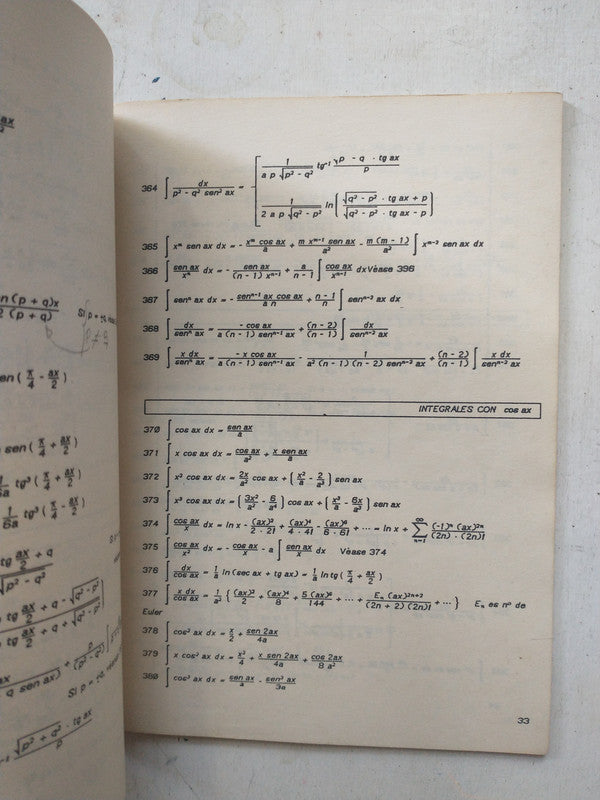 364 ∫ dx / (p² - q² sen² ax) = [ 1 / (a p √(p² - q²)) tg⁻¹ (√(p - q · tg ax) / p)
1 / (2 a p √(q² - p²)) ln ( (√(q² - p²) · tg ax + p) / (√(q² - p²) · tg ax - p) )
365 ∫ xᵐ sen ax dx = - xᵐ cos ax / a + m xᵐ⁻¹ sen ax / a² - m (m - 1) / a² ∫ xᵐ⁻² sen ax dx
366 ∫ sen ax / xⁿ dx = - sen ax / ((n - 1) xⁿ⁻¹) + a / (n - 1) ∫ cos ax / xⁿ⁻¹ dx Véase 396
367 ∫ senⁿ ax dx = - senⁿ⁻¹ ax cos ax / (a n) + (n - 1) / n ∫ senⁿ⁻² ax dx
368 ∫ dx / senⁿ ax = - cos ax / (a (n - 1) senⁿ⁻¹ ax) + (n - 2) / (n - 1) ∫ dx / senⁿ⁻² ax
369 ∫ x dx / senⁿ ax = - x cos ax / (a (n - 1) senⁿ⁻¹ ax) - 1 / (a² (n - 1) (n - 2) senⁿ⁻² ax) + (n - 2) / (n - 1) ∫ x dx / senⁿ⁻² ax
INTEGRALES CON cos ax
370 ∫ cos ax dx = sen ax / a
371 ∫ x cos ax dx = cos ax / a² + x sen ax / a
372 ∫ x² cos ax dx = 2x / a² cos ax + ( x² / a - 2 / a³ ) sen ax
373 ∫ x³ cos ax dx = ( 3x² / a² - 6 / a⁴ ) cos ax + ( x³ / a - 6x / a³ ) sen ax
374 ∫ cos ax / x dx = ln x - (ax)² / (2 · 2!) + (ax)⁴ / (4 · 4!) - (ax)⁶ / (6 · 6!) + ··· = ln x + ∑ₙ₌₁^∞ (-1)ⁿ (ax)²ⁿ / ((2n) · (2n)!)
375 ∫ cos ax / x² dx = - cos ax / x - a ∫ sen ax / x dx Véase 374
376 ∫ dx / cos ax = 1 / a ln (sec ax + tg ax) = 1 / a ln tg ( π / 4 + ax / 2 )
377 ∫ x dx / cos ax = 1 / a² { (ax)² / 2 + (ax)⁴ / 8 + 5 (ax)⁶ / 144 + ··· + Eₙ (ax)²ⁿ⁺² / ((2n + 2) (2n)!) + ··· } Eₙ es nº de
Euler
378 ∫ cos² ax dx = x / 2 + sen 2ax / 4a
379 ∫ x cos² ax dx = x² / 4 + x sen 2ax / 4a + cos 2ax / 8 a²
380 ∫ cos³ ax dx = sen ax / a - sen³ ax / 3a
33